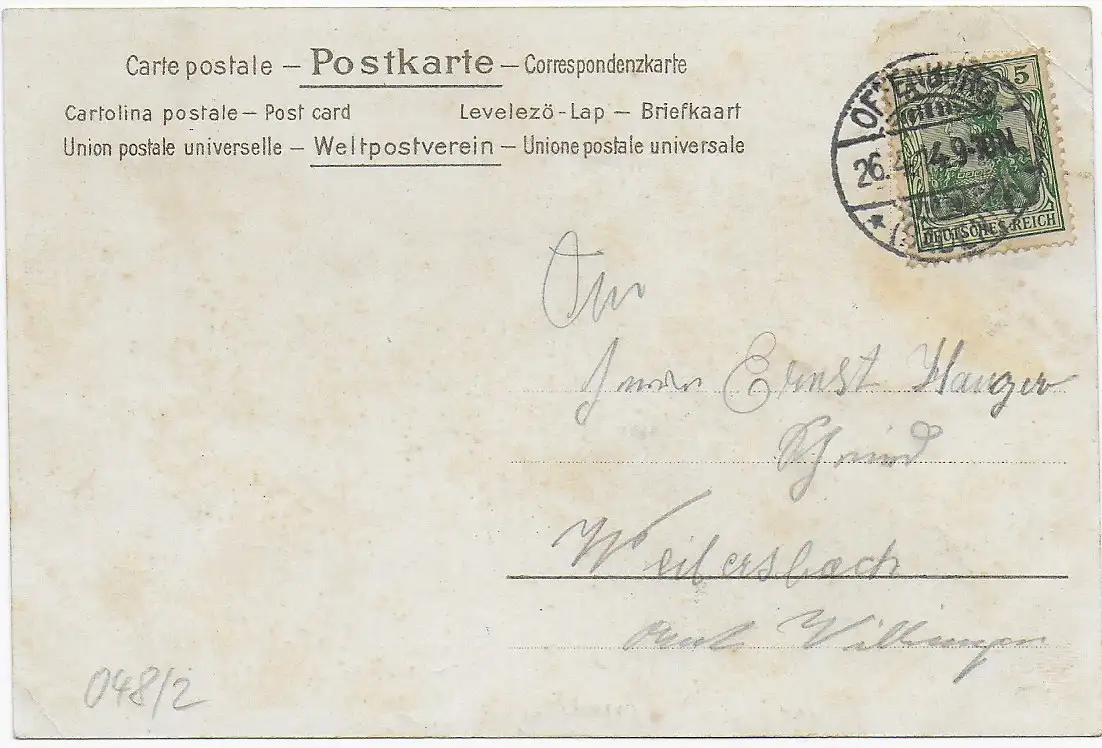 Carte postale – Postkarte – Correspondenzkarte
Cartolina postale – Post card Levelező-Lap – Briefkaart
Union postale universelle – Weltpostverein – Unione postale universale
5
DEUTSCHES REICH
OFFENBURG
26.4.14.9-10N
An
Ernst Hauger
Schmied
Weilersbach
Amt Villingen
048/2